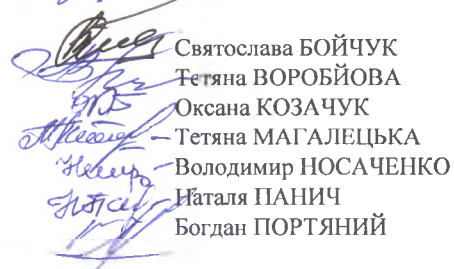 Святослава БОЙЧУК
Тетяна ВОРОБЙОВА
Оксана КОЗАЧУК
Тетяна МАГАЛЕЦЬКА
Володимир НОСАЧЕНКО
Наталя ПАНИЧ
Богдан ПОРТЯНИЙ